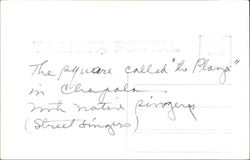 TARJETA POSTAL
The square called "the Plaza"
in Chapala
with native singers
(Street Singers)